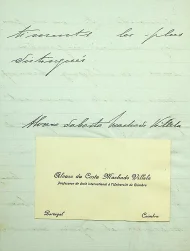 timents les plus
distingués
Alvaro da Costa Machado Villela
Alvaro da Costa Machado Villela
Professeur de Droit international à l'Université de Coimbra
Portugal
Coimbra